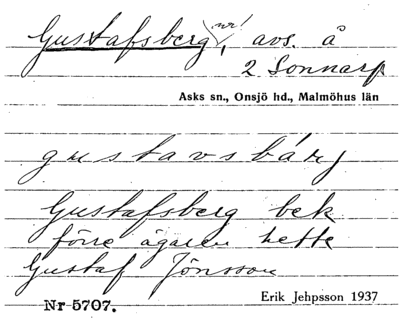 Gustafsberg, nr 1, avs. å
2 Sonnarp
Asks sn., Onsjö hd., Malmöhus län
gustavsbárj
Gustafsberg bek
förre ägaren hette
Gustaf Jönsson
Nr 5707.
Erik Jehpsson 1937